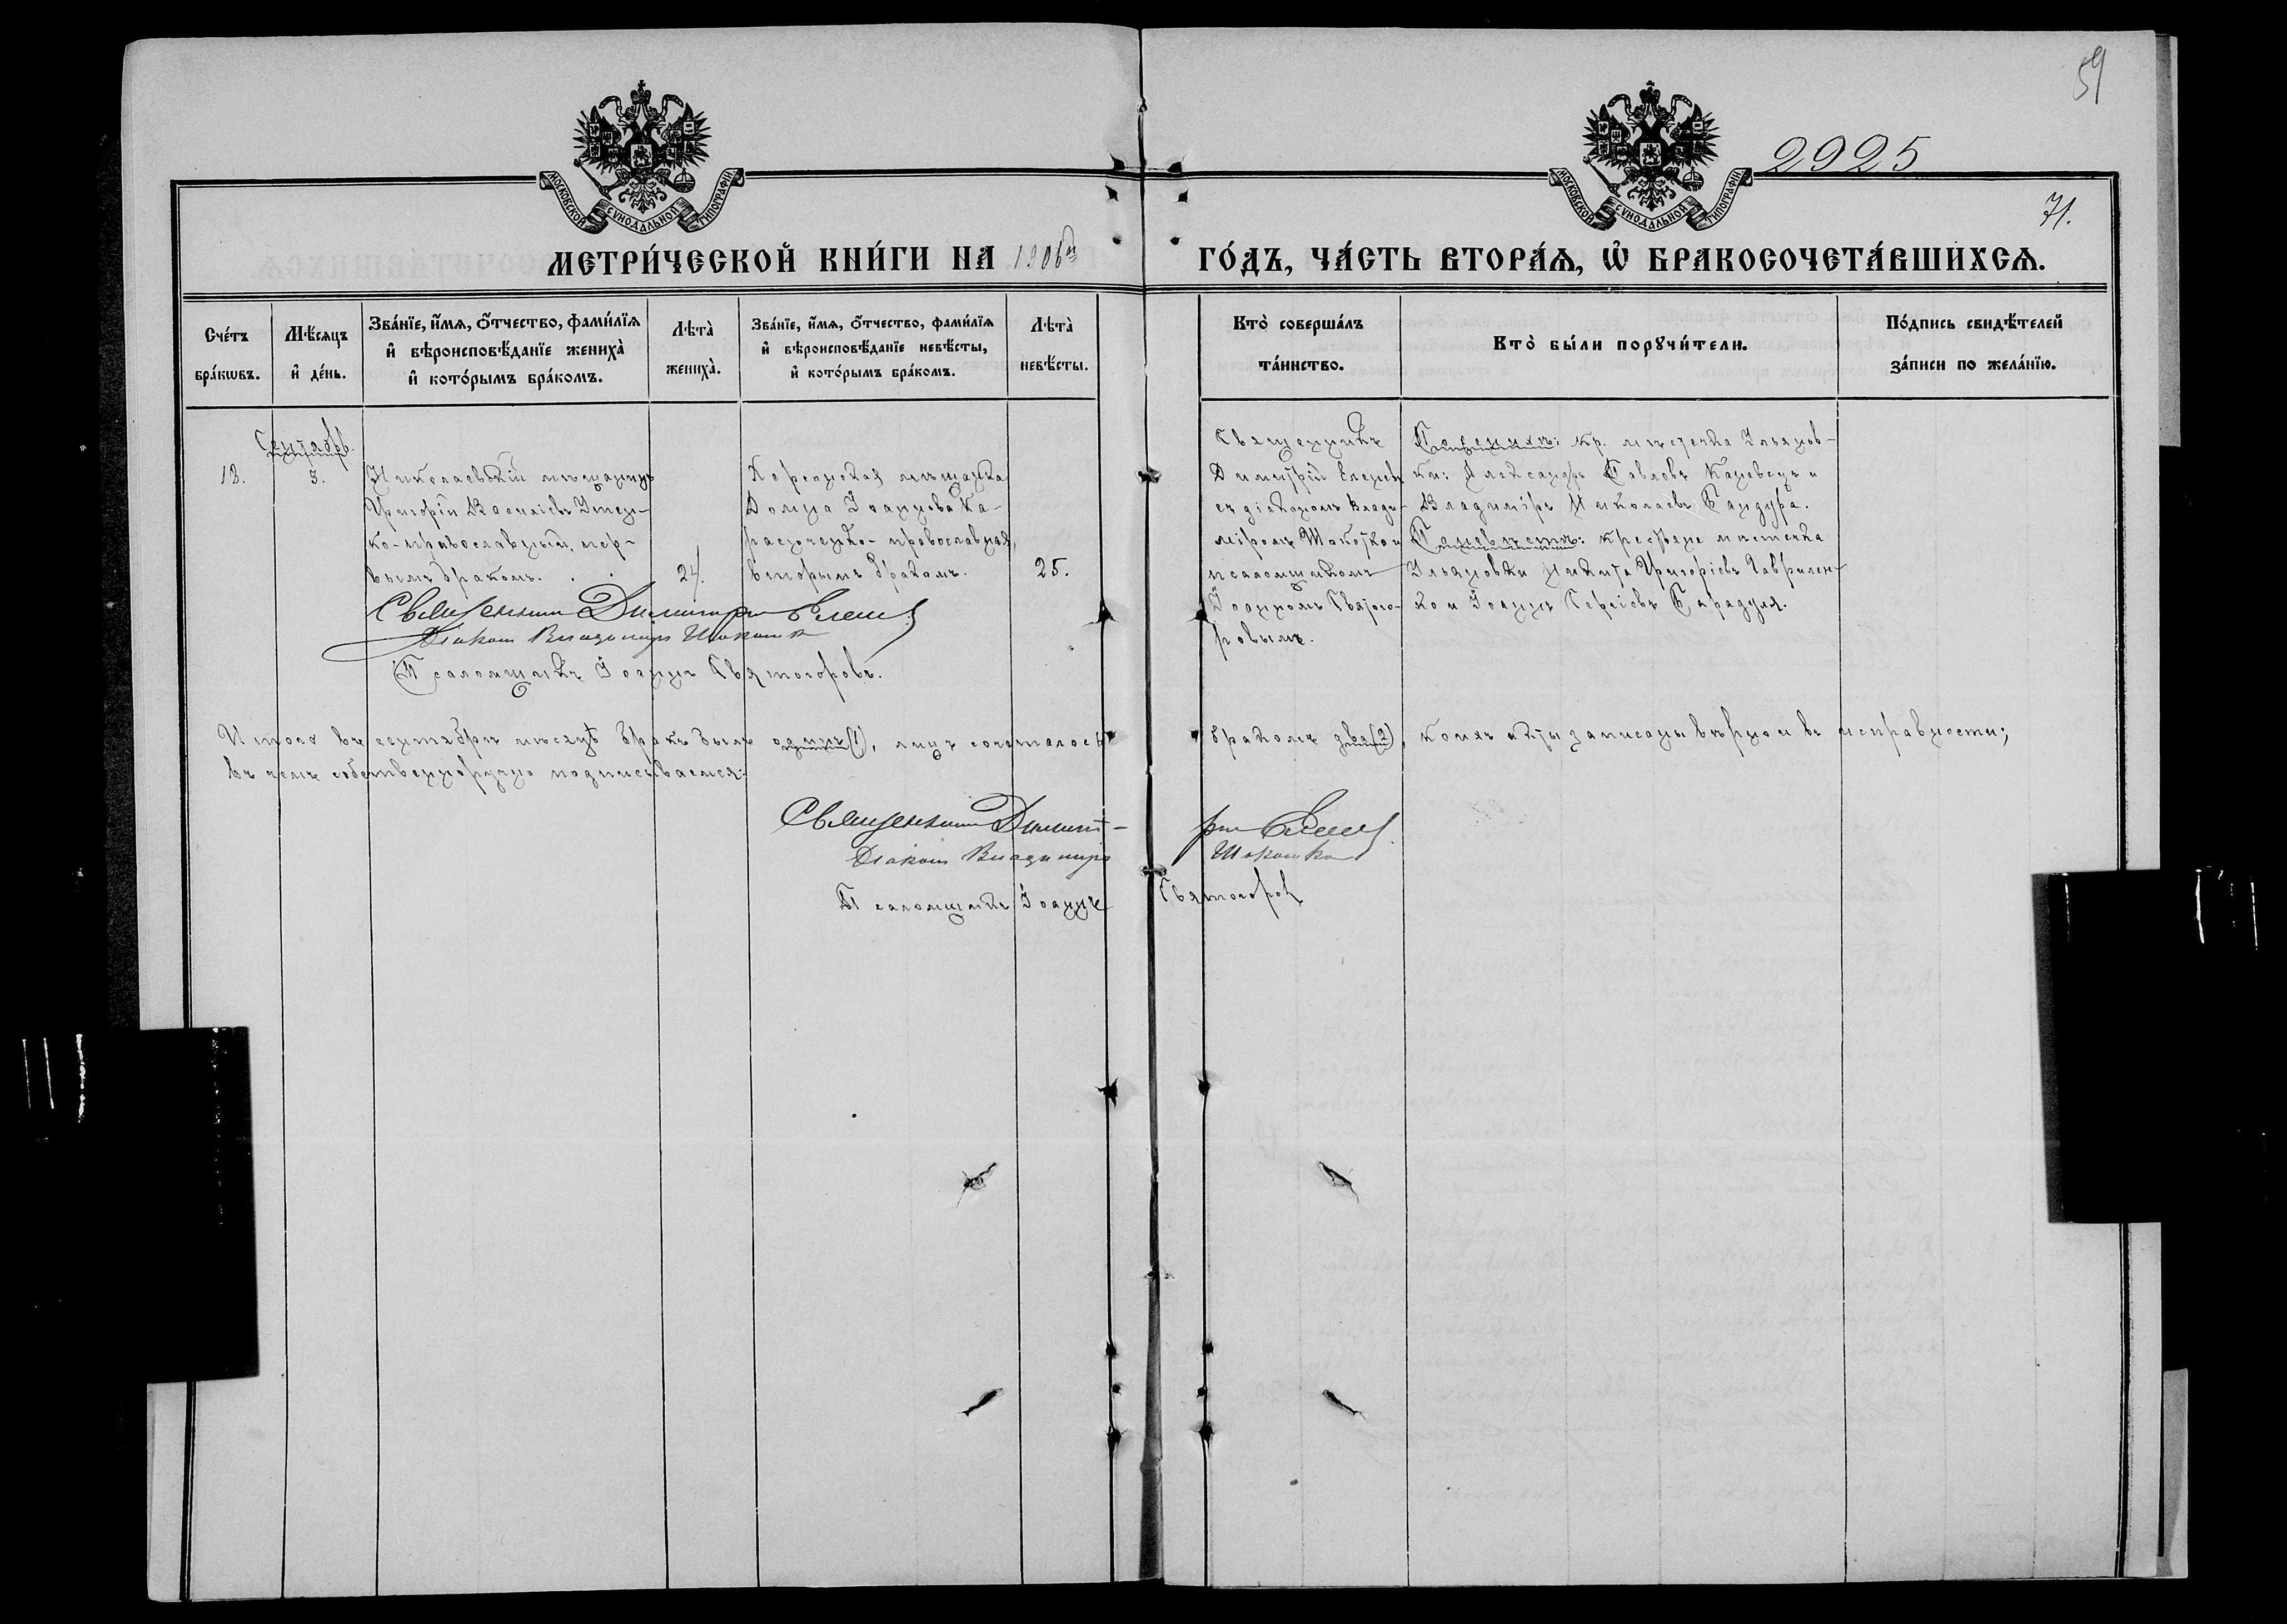 59
2925
71.
МОСКОВСКОЙ СѴНОДАЛЬНОЙ ТИПОГРАФІИ
МОСКОВСКОЙ СѴНОДАЛЬНОЙ ТИПОГРАФІИ
МЕТРИ́ЧЕСКОЙ КНИ́ГИ НА 1906й ГО́ДЪ, ЧА́СТЬ ВТОРА́Ѧ, Ѡ БРАКОСОЧЕТА́ВШИХСѦ.
Сче́тъ бра́кѡвъ.
Мѣ́сяцъ и де́нь.
Зва́нїе, и́мя, ѻ́тчество, фами́лїя
и вѣроисповѣ́данїе жениха̀
и кото́рымъ бра́комъ.
Лѣта̀ жениха̀.
Зва́нїе, и́мя, ѻ́тчество, фами́лїя
и вѣроисповѣ́данїе невѣ́сты,
и кото́рымъ бра́комъ.
Лѣта̀ невѣ́сты.
Кто̀ соверша́лъ
та́инство.
Кто̀ бы́ли порꙋчи́тели.
По́дпись свидѣ́телей
за́писи по жела́нїю.
Сентябрь.
18.
3.
Николаевскій мѣщанинъ
Григорій Василіевъ
ко-православный, пер-
вымъ бракомъ.
24.
Херсонская мѣщанка
Домна Іоаннова Ка-
православная,
вторымъ бракомъ.
25.
Священникъ
Димитрій
съ діакономъ Влади-
міромъ Шокотко и
псаломщикомъ
Іоанномъ Святого-
ровымъ.
По женихѣ: кр. мѣстечка Ульянов-
ки: Александръ Павловъ и
Владиміръ Николаевъ Бандура.
По невѣстѣ: крестьяне мѣстечка
Ульяновки Никита Григоріевъ Гаврилен-
ко и Іоаннъ Сергіевъ
Священникъ Димитрій
Діаконъ Владиміръ Шокотко
Псаломщикъ Іоаннъ Святогоровъ.
Итого въ сентябрѣ мѣсяцѣ бракъ былъ одинъ (1), лицъ сочеталось бракомъ два (2), коихъ акты записаны вѣрно и въ исправности;
въ чемъ собственноручно подписываемся:
Священникъ Димитрій
Діаконъ Владиміръ Шокотко
Псаломщикъ Іоаннъ Святогоровъ